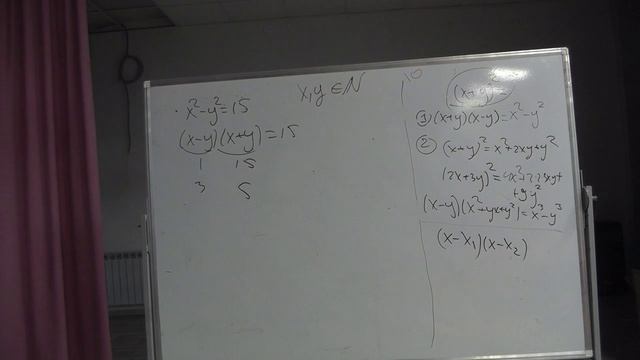 x²-y²=15
x,y∈N
(x-y)(x+y)=15
1 15
3 5
10
(x+y)
1) (x+y)(x-y)=x²-y²
2) (x+y)²=x²+2xy+y²
(2x+3y)²=4x²+2·2·3xy+
+9y²
(x-y)(x²+yx+y²)=x³-y³
(x-x₁)(x-x₂)